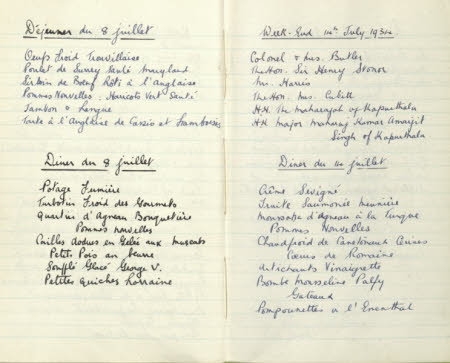 Déjeuner du 8 juillet
Oeufs Froid Trouvillaise
Poulet de Surrey Sauté
Sirloin de Boeuf Rôti à l'Anglaise
Pommes Nouvelles. Haricots Vert Sauté
Jambon & Langue
Tarte à l'Anglaise de Cassis et Framboises
Dîner du 8 juillet
Potage Fumière
Turbotin Froid des Gourmets
Quartier d'Agneau Bouquetière
Pommes nouvelles
Cailles dodues en Gelée aux muscats
Petits Pois au beurre
Soufflé Glacé George V.
Petites quiches Lorraine
Week-End 14th July 1934
Colonel & Mrs. Butler
The Hon. Sir Henry Stonor
Mrs. Harris
The Hon. Mrs. Cubitt
H.H. The Maharajah of Kapurthala
H.H. Major Maharaj Kumar Amarjit
Singh of Kapurthala
Dîner du 14 juillet
Crème Sévigné
Truite Saumonée meunière
d'agneau à la Turque
Pommes Nouvelles
Chaudfroid de Canetons aux Cerises
Coeurs de Romaine
Artichauts Vinaigrette
Bombe Mousseline Palfy
Gateaux
Pomponnettes à l'Emmenthal